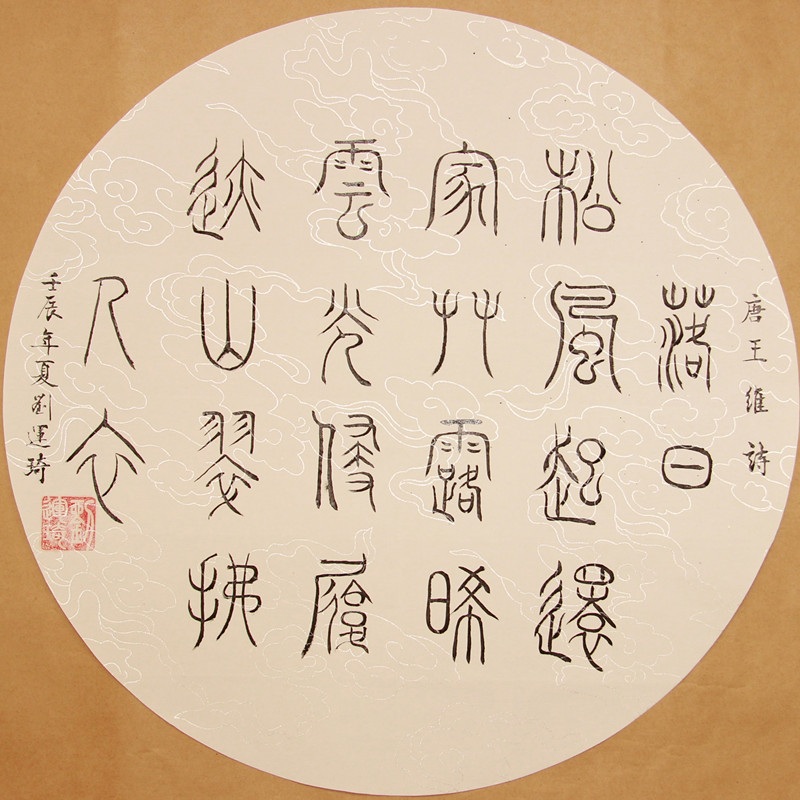 唐王維詩
落日
松風起還
家艸露晞
雲光侵履
迹山翠拂
人衣
壬辰年夏劉運琦
劉運琦